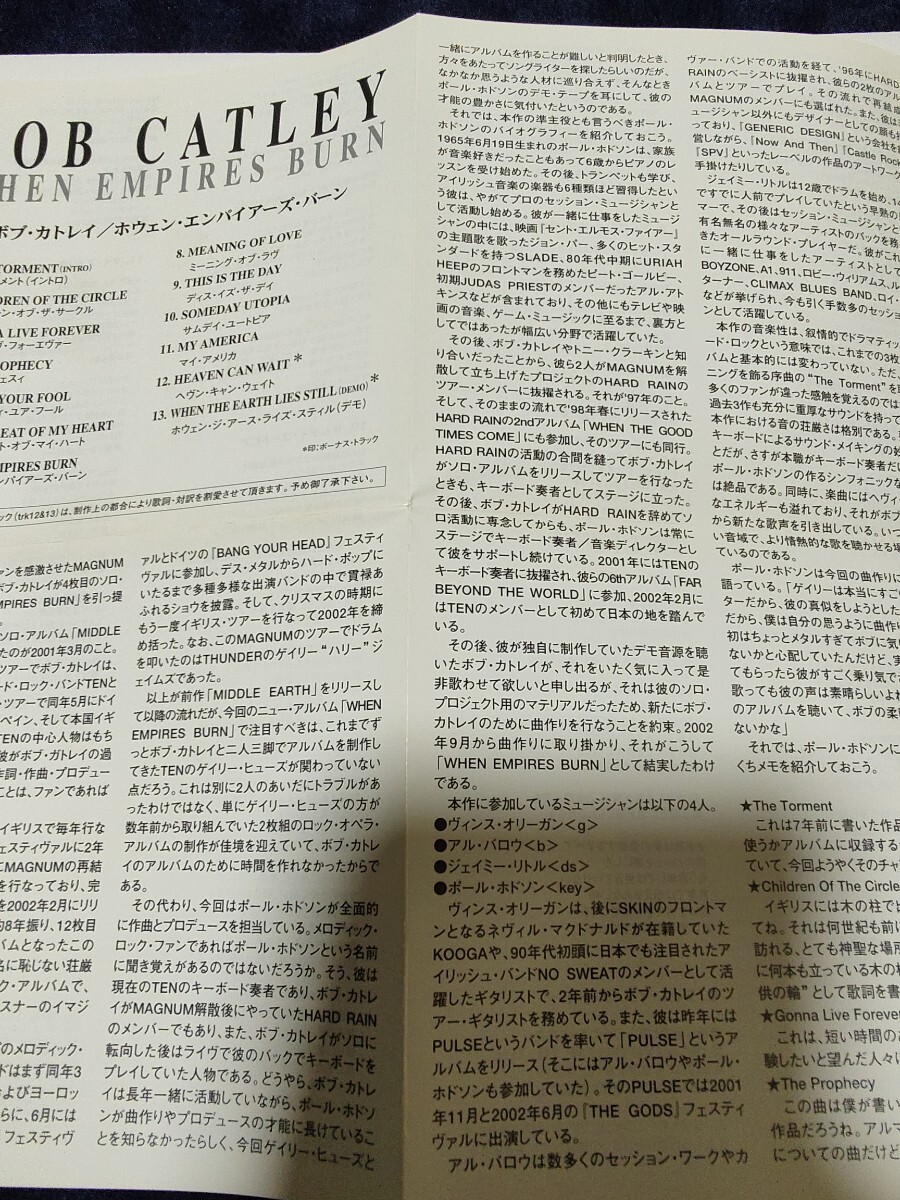 OB CATLEY
HEN EMPIRES BURN
ボブ・カトレイ／ホウェン・エンパイアーズ・バーン
TORMENT (INTRO)
メント（イントロ）
DREN OF THE CIRCLE
ン・オブ・ザ・サークル
A LIVE FOREVER
ヴ・フォーエヴァー
PROPHECY
ェスィ
YOUR FOOL
イ・ユア・フール
EAT OF MY HEART
ト・オブ・マイ・ハート
MPIRES BURN
ンパイアーズ・バーン
8. MEANING OF LOVE
ミーニング・オブ・ラヴ
9. THIS IS THE DAY
ディス・イズ・ザ・デイ
10. SOMEDAY UTOPIA
サムデイ・ユートピア
11. MY AMERICA
マイ・アメリカ
12. HEAVEN CAN WAIT *
ヘヴン・キャン・ウェイト
13. WHEN THE EARTH LIES STILL (DEMO) *
ホウェン・ジ・アース・ライズ・スティル（デモ）
*印：ボーナス・トラック
ック(trk12&13)は、制作上の都合により歌詞・対訳を割愛させて頂きます。予め御了承下さい。
ァンを感激させたMAGNUM
ボブ・カトレイが4枚目のソロ・
MPIRES BURN」を引っ提
。
ソロ・アルバム「MIDDLE
たのが2001年3月のこと。
ツアーでボブ・カトレイは、
ード・ロック・バンドTENと
・ツアーで同年5月にドイ
ペイン、そして本国イギ
TENの中心人物はもち
彼がボブ・ガトレイの過
作詞・作曲・プロデュー
ことは、ファンであれば
イギリスで毎年行な
ェスティヴァルに2年
にMAGNUMの再結
を行なっており、完
を2002年2月にリリ
約8年振り、12枚目
バムとなったこの
名に恥じない荘厳
ク・アルバムで、
スナーのイマジ
どのメロディック・
ドはまず同年3
およびヨーロッ
らに、6月には
フェスティヴ
ァルとドイツの『BANG YOUR HEAD』フェスティ
ヴァルに参加し、デス・メタルからハード・ポップに
いたるまで多種多様な出演バンドの中で貫禄あ
ふれるショウを披露。そして、クリスマスの時期に
もう一度イギリス・ツアーを行なって2002年を締
め括った。なお、このMAGNUMのツアーでドラム
を叩いたのはTHUNDERのゲイリー“ハリー”ジ
ェイムズであった。
以上が前作「MIDDLE EARTH」をリリースし
て以降の流れだが、今回のニュー・アルバム「WHEN
EMPIRES BURN」で注目すべきは、これまでず
っとボブ・カトレイと二人三脚でアルバムを制作し
てきたTENのゲイリー・ヒューズが関わっていない
点だろう。これは別に2人のあいだにトラブルがあ
ったわけではなく、単にゲイリー・ヒューズの方が
数年前から取り組んでいた2枚組のロック・オペラ・
アルバムの制作が佳境を迎えていて、ボブ・カトレ
イのアルバムのために時間を作れなかったからで
ある。
その代わり、今回はポール・ホドソンが全面的
に作曲とプロデュースを担当している。メロディック・
ロック・ファンであればポール・ホドソンという名前
に聞き覚えがあるのではないだろうか。そう、彼は
現在のTENのキーボード奏者であり、ボブ・カトレ
イがMAGNUM解散後にやっていたHARD RAIN
のメンバーでもあり、また、ボブ・カトレイがソロに
転向した後はライヴで彼のバックでキーボードを
プレイしていた人物である。どうやら、ボブ・カトレ
イは長年一緒に活動していながら、ポール・ホドソ
ンが曲作りやプロデュースの才能に長けているこ
とを知らなかったらしく、今回ゲイリー・ヒューズと
一緒にアルバムを作ることが難しいと判明したとき、
方々をあたってソングライターを探したらしいのだが、
なかなか思うような人材に巡り合えず、そんなとき
ポール・ホドソンのデモ・テープを耳にして、彼の
才能の豊かさに気付いたというのである。
それでは、本作の準主役とも言うべきポール・
ホドソンのバイオグラフィーを紹介しておこう。
1965年6月19日生まれのポール・ホドソンは、家族
が音楽好きだったこともあって6歳からピアノのレ
ッスンを受け始めた。その後、トランペットも学び、
アイリッシュ音楽の楽器も6種類ほど習得したとい
う彼は、やがてプロのセッション・ミュージシャンと
して活動し始める。彼が一緒に仕事をしたミュージ
シャンの中には、映画『セント・エルモス・ファイアー』
の主題歌を歌ったジョン・パー、多くのヒット・スタ
ンダードを持つSLADE、80年代中期にURIAH
HEEPのフロントマンを務めたピート・ゴールビー、
初期JUDAS PRIESTのメンバーだったアル・アト
キンスなどが含まれており、その他にもテレビや映
画の音楽、ゲーム・ミュージックに至るまで、裏方と
してではあったが幅広い分野で活躍していた。
その後、ボブ・カトレイやトニー・クラーキンと知
り合いだったことから、彼ら2人がMAGNUMを解
散して立ち上げたプロジェクトのHARD RAINの
ツアー・メンバーに抜擢される。それが'97年のこと。
そして、そのままの流れで'98年春にリリースされた
HARD RAINの2ndアルバム「WHEN THE GOOD
TIMES COME」にも参加し、そのツアーにも同行。
HARD RAINの活動の合間を縫ってボブ・カトレイ
がソロ・アルバムをリリースしてツアーを行なった
ときも、キーボード奏者としてステージに立った。
その後、ボブ・カトレイがHARD RAINを辞めてソ
ロ活動に専念してからも、ポール・ホドソンは常に
ステージでキーボード奏者／音楽ディレクターとし
て彼をサポートし続けている。2001年にはTENの
キーボード奏者に抜擢され、彼らの6thアルバム「FAR
BEYOND THE WORLD」に参加、2002年2月に
はTENのメンバーとして初めて日本の地を踏んで
いる。
その後、彼が独自に制作していたデモ音源を聴
いたボブ・カトレイが、それをいたく気に入って是
非歌わせて欲しいと申し出るが、それは彼のソロ・
プロジェクト用のマテリアルだったため、新たにボブ・
カトレイのために曲作りを行なうことを約束。2002
年9月から曲作りに取り掛かり、それがこうして
「WHEN EMPIRES BURN」として結実したわけ
である。
本作に参加しているミュージシャンは以下の4人。
●ヴィンス・オリーガン＜g＞
●アル・バロウ＜b＞
●ジェイミー・リトル＜ds＞
●ポール・ホドソン＜key＞
ヴィンス・オリーガンは、後にSKINのフロントマ
ンとなるネヴィル・マクドナルドが在籍していた
KOOGAや、90年代初頭に日本でも注目されたア
イリッシュ・バンドNO SWEATのメンバーとして活
躍したギタリストで、2年前からボブ・カトレイのツ
アー・ギタリストを務めている。また、彼は昨年には
PULSEというバンドを率いて「PULSE」というア
ルバムをリリース（そこにはアル・バロウやポール・
ホドソンも参加していた）。そのPULSEでは2001
年11月と2002年6月の『THE GODS』フェスティ
ヴァルに出演している。
アル・バロウは数多くのセッション・ワークやカ
ヴァー・バンドでの活動を経て、'96年にHARD
RAINのベーシストに抜擢され、彼らの2枚のアル
バムとツアーでプレイ。その流れで再結成
MAGNUMのメンバーにも選ばれた。また、彼は
ュージシャン以外にもデザイナーとしての顔も持
っており、『GENERIC DESIGN』という会社を
営しながら、『Now And Then』『Castle Rock
『SPV』といったレーベルの作品のアートワーク
手掛けたりしている。
ジェイミー・リトルは12歳でドラムを始め、14
ですでに人前でプレイしていたという早熟の
マーで、その後はセッション・ミュージシャンと
有名無名の様々なアーティストのバックを務
きたオールラウンド・プレイヤーだ。彼がこれ
に一緒に仕事をしたアーティストとして
BOYZONE、A1、911、ロビー・ウィリアムス、ル
ターナー、CLIMAX BLUES BAND、ロイ・
などが挙げられ、今も引く手数多のセッショ
して活躍している。
本作の音楽性は、叙情的でドラマティッ
ード・ロックという意味では、これまでの3枚
バムと基本的には変わっていない。ただ、
ニングを飾る序曲の“The Torment”を聴
多くのファンが違った感触を覚えるのでは
過去3作も充分に重厚なサウンドを持って
本作における音の荘厳さは格別である。
キーボードによるサウンド・メイキングの妙
とだが、さすが本職がキーボード奏者だい
ポール・ホドソンの作るシンフォニックな
は絶品である。同時に、楽曲にはヘヴィ
なエネルギーも溢れており、それがボブ
から新たな歌声を引き出している。いつ
い音域で、より情熱的な歌を聴かせる場
ているのである。
ポール・ホドソンは今回の曲作りに
語っている。「ゲイリーは本当にすご
ターだから、彼の真似をしようとした
だから、僕は自分の思うように曲作り
初はちょっとメタルすぎてボブに気い
ないかと心配していたんだけど、実
てもらったら彼がすごく乗り気でさ
歌っても彼の声は素晴らしいよね
のアルバムを聴いて、ボブの柔
ないかな」
それでは、ポール・ホドソンに
くちメモを紹介しておこう。
★The Torment
これは7年前に書いた作品
使うかアルバムに収録するか
ていて、今回ようやくそのチャ
★Children Of The Circle
イギリスには木の柱でピ
てね。それは何世紀も前に
訪れる、とても神聖な場所
に何本も立っている木の柱
供の輪”として歌詞を書
★Gonna Live Forever
これは、短い時間のあ
験したいと望んだ人々に
★The Prophecy
この曲は僕が書い
作品だろうね。アルマ
についての曲だけど